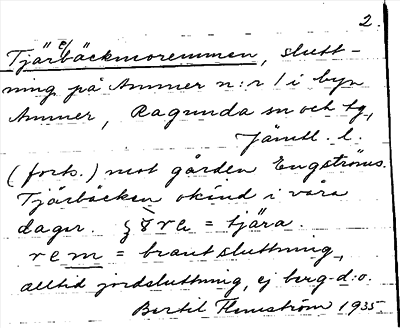 2.
Tjärbäckmoremmen, slutt-
ning på Ammer n:r 1 i byn
Ammer, Ragunda sn och tg,
Jämtl. l.
(forts.) mot gården Engströms.
Tjärbäcken okänd i våra
dagar. = tjära.
rem = brant sluttning,
alltid jordsluttning, ej berg-d:o.
Bertil Flemström 1935